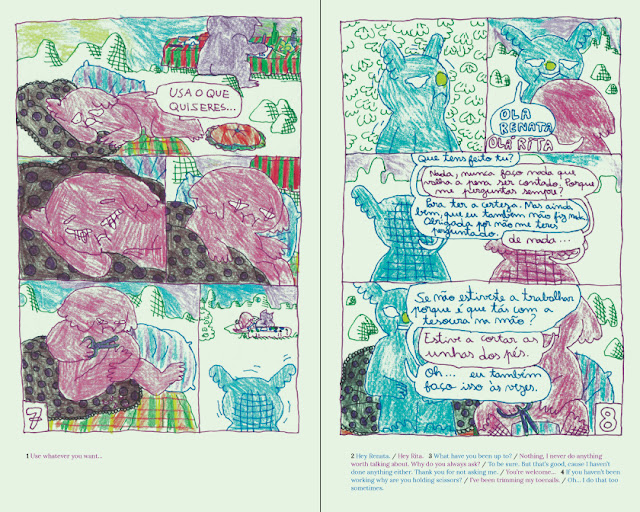 USA O QUE
QUISERES...
7
1 Use whatever you want...
OLÁ
RENATA
OLÁ RITA
Que tens feito tu?
Nada, nunca faço nada que
valha a pena ser contado. Porque
me perguntas sempre?
Para ter a certeza. Mas ainda
bem, que eu também não fiz nada.
Obrigada por não me teres
perguntado.
de nada...
Se não estiveste a trabalhar
porque é que tás com a
tesoura na mão?
Estive a cortar as
unhas dos pés.
Oh... eu também
faço isso às vezes.
8
2 Hey Renata. / Hey Rita. 3 What have you been up to? / Nothing, I never do anything
worth talking about. Why do you always ask? / To be sure. But that's good, cause I haven't
done anything either. Thank you for not asking me. / You're welcome... 4 If you haven't been
working why are you holding scissors? / I've been trimming my toenails. / Oh... I do that too
sometimes.